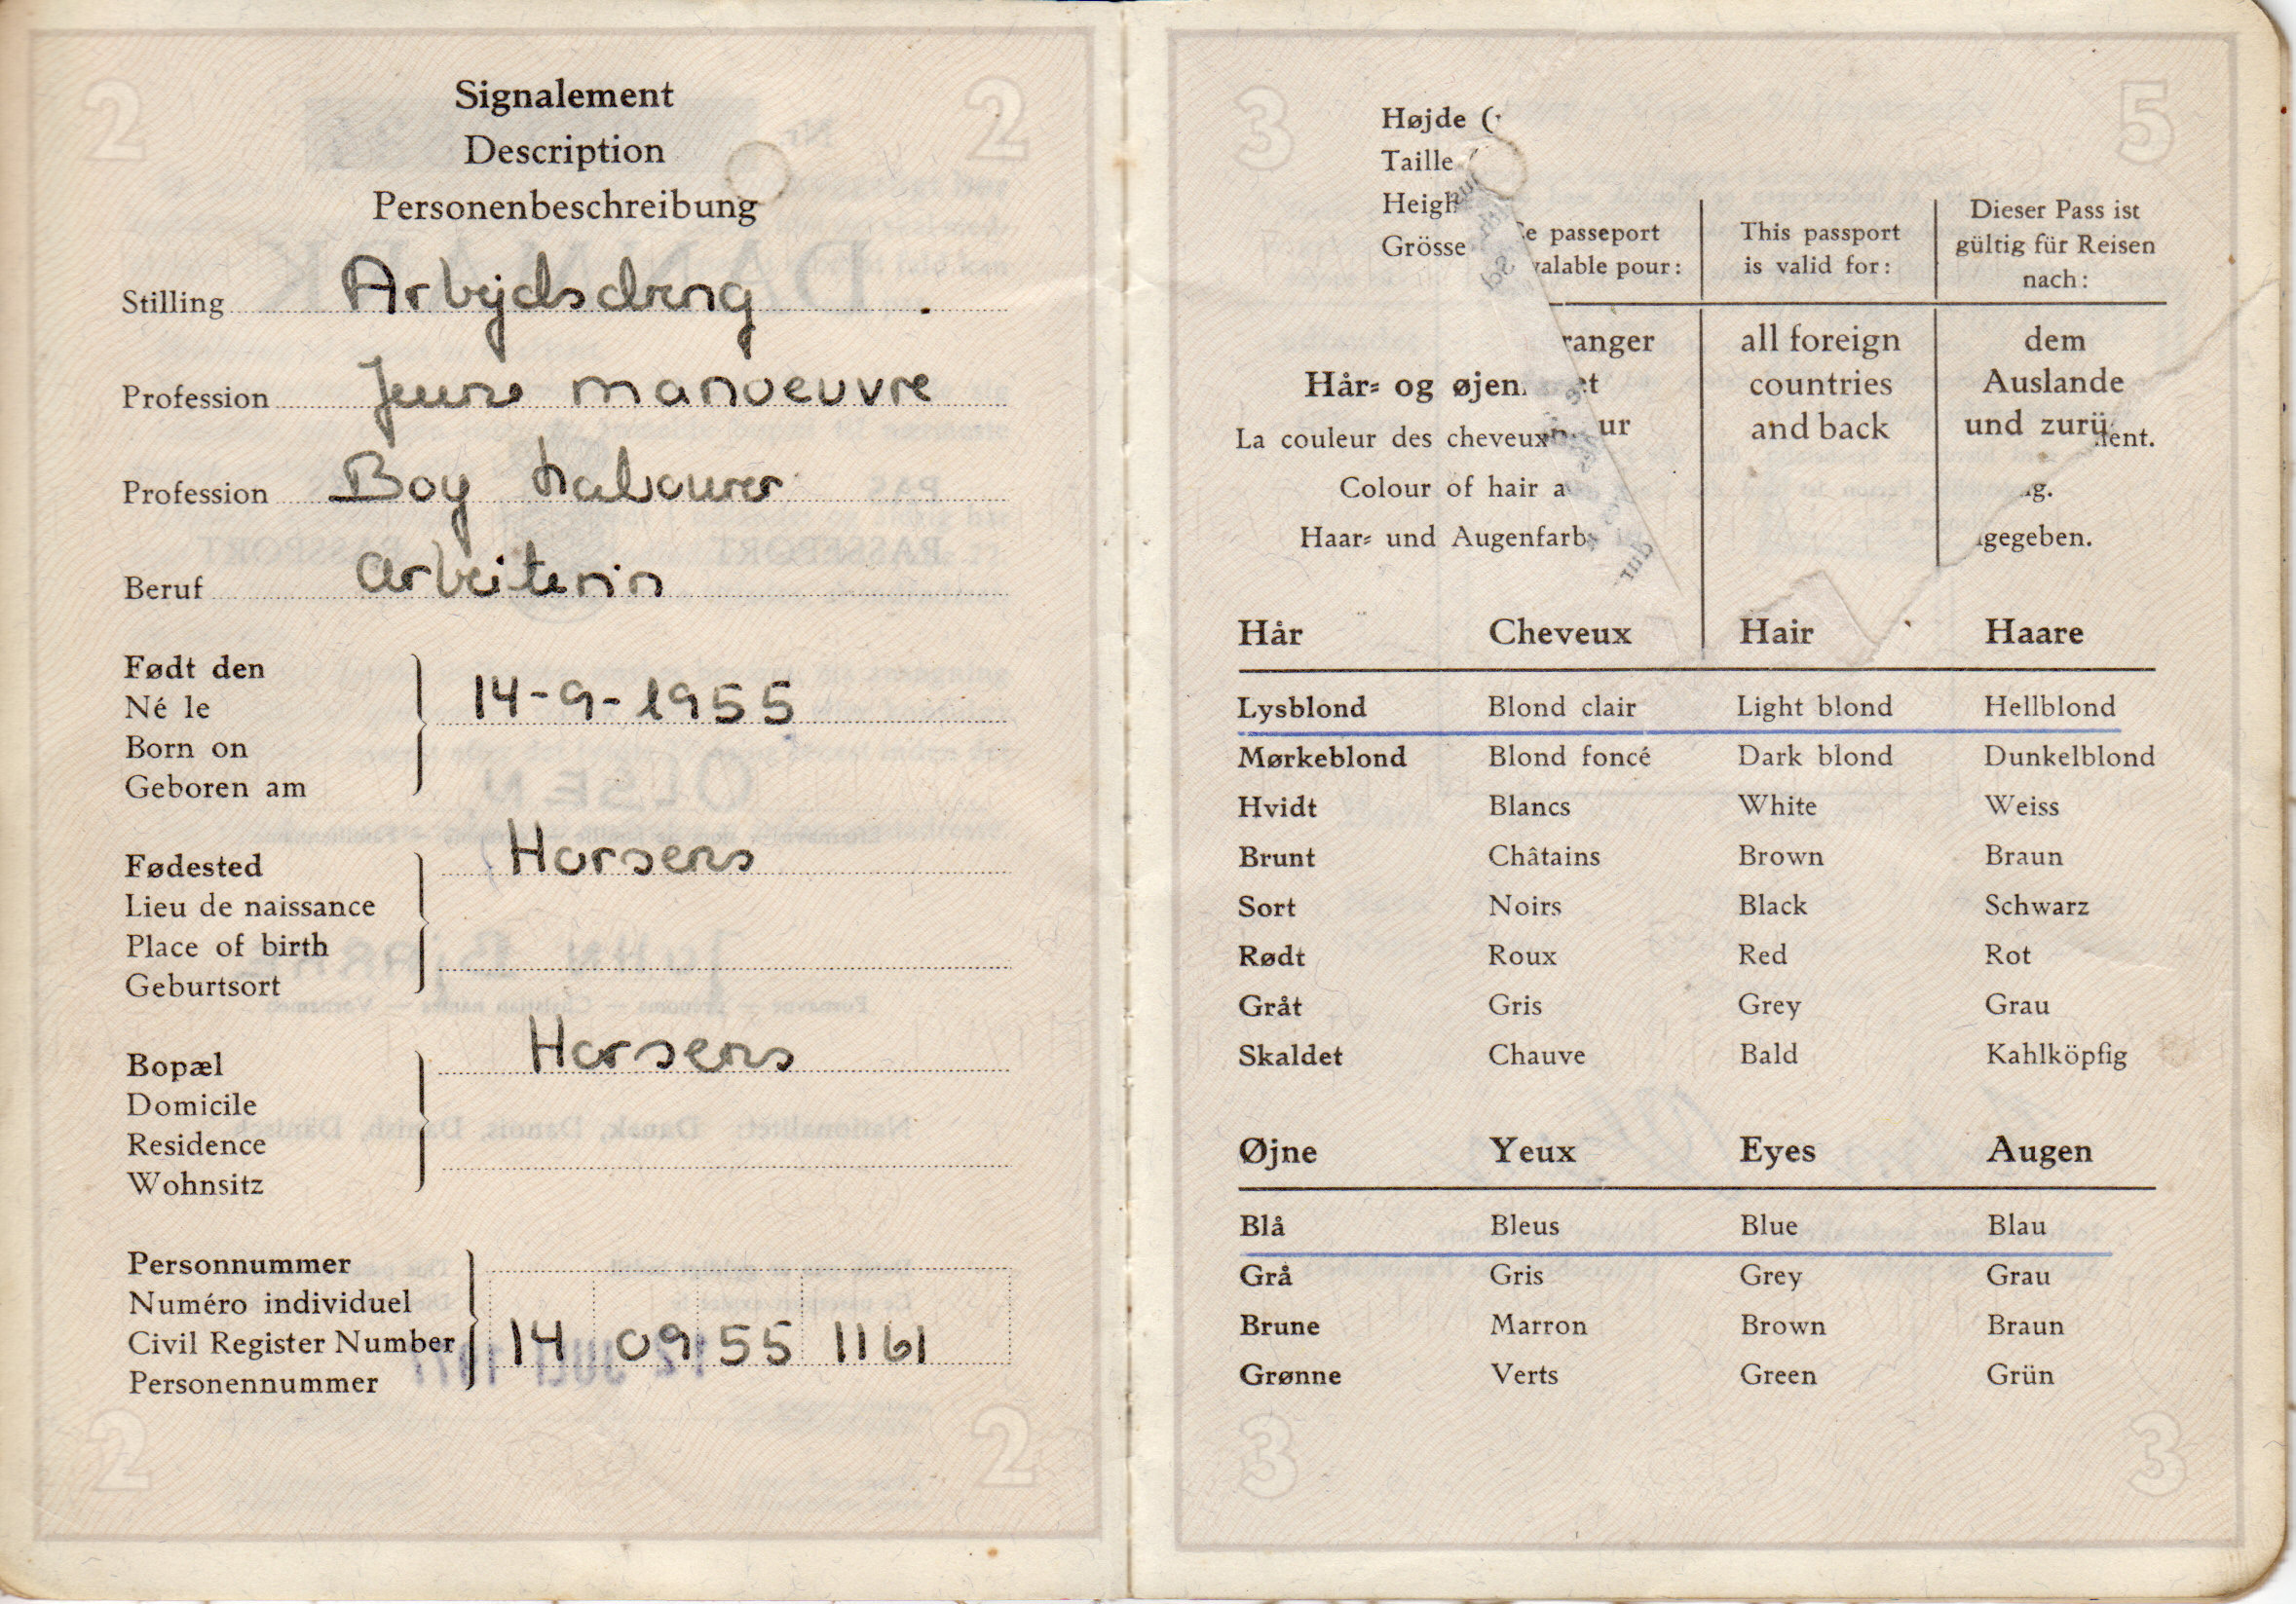 2 2
Signalement
Description
Personenbeschreibung
Stilling Arbejdsdreng
Profession Jeune manoeuvre
Profession Boy Labourer
Beruf Arbeiterin
Født den
Né le
Born on
Geboren am
14-9-1955
Fødested
Lieu de naissance
Place of birth
Geburtsort
Horsens
Bopæl
Domicile
Residence
Wohnsitz
Horsens
Personnummer
Numéro individuel
Civil Register Number
Personennummer
14 09 55 1161
2 2
3 5
Højde (
Taille
Heigh
Grösse
e passeport
valable pour:
This passport
is valid for:
Dieser Pass ist
gültig für Reisen
nach:
ranger
et
ur
all foreign
countries
and back
dem
Auslande
und zurü
ent.
g.
gegeben.
Hår= og øjen
La couleur des cheveux
Colour of hair a
Haar= und Augenfarb
Hår Cheveux Hair Haare
Lysblond Blond clair Light blond Hellblond
Mørkeblond Blond foncé Dark blond Dunkelblond
Hvidt Blancs White Weiss
Brunt Châtains Brown Braun
Sort Noirs Black Schwarz
Rødt Roux Red Rot
Gråt Gris Grey Grau
Skaldet Chauve Bald Kahlköpfig
Øjne Yeux Eyes Augen
Blå Bleus Blue Blau
Grå Gris Grey Grau
Brune Marron Brown Braun
Grønne Verts Green Grün
3 3